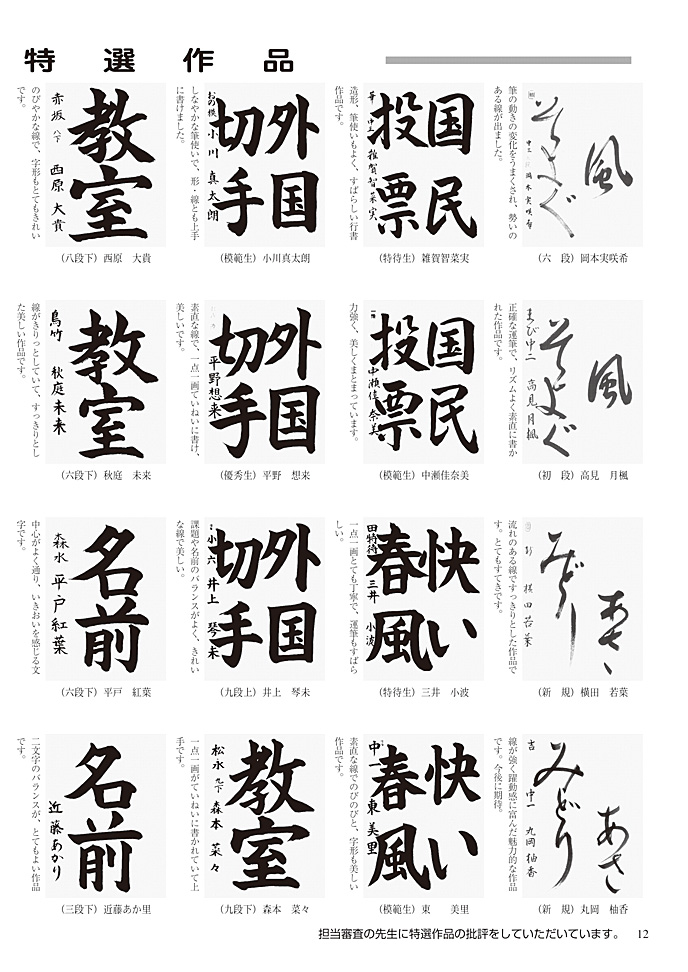 特選作品
風
そよぐ
中三
岡本実咲希
筆の動きの変化をうまくされ、勢いの
ある線が出ました。
(六 段) 岡本実咲希
国民
投票
中三
雑賀智菜実
造形、筆使いもよく、すばらしい行書
作品です。
(特待生) 雑賀智菜実
外国
切手
小川真太朗
しなやかな筆使いで、形・線とも上手
に書けました。
(模範生) 小川真太朗
教室
赤坂 八下 西原大貴
のびやかな線で、字形もとてもきれい
です。
(八段下) 西原 大貴
風
そよぐ
まび中二 高見月楓
正確な運筆で、リズムよく素直に書か
れた作品です。
(初 段) 高見 月楓
国民
投票
中瀬佳奈美
力強く、美しくまとまっています。
(模範生) 中瀬佳奈美
外国
切手
平野想来
素直な線で、一点一画ていねいに書け、
美しいです。
(優秀生) 平野 想来
教室
鳥竹 秋庭未来
線がきりっとしていて、すっきりとし
た美しい作品です。
(六段下) 秋庭 未来
あさ
みどり
横田若葉
流れのある線ですっきりとした作品で
す。とてもすてきです。
(新 規) 横田 若葉
快い
春風
田特待 三井 小波
一点一画とても丁寧で、運筆もすばら
しい。
(特待生) 三井 小波
外国
切手
小六 井上 琴未
課題や名前のバランスがよく、きれい
な線で美しい。
(九段上) 井上 琴未
名前
森水 平戸紅葉
中心がよく通り、いきおいを感じる文
字です。
(六段下) 平戸 紅葉
あさ
みどり
吉 中一 丸岡柚香
線が強く躍動感に富んだ魅力的な作品
です。今後に期待。
(新 規) 丸岡 柚香
快い
春風
中一 東美里
素直な線でのびのびと、字形も美しい
作品です。
(模範生) 東 美里
教室
松永 九下 森本菜々
一点一画がていねいに書かれていて上
手です。
(九段下) 森本 菜々
名前
近藤あかり
二文字のバランスが、とてもよい作品
です。
(三段下) 近藤あか里
担当審査の先生に特選作品の批評をしていただいています。 12